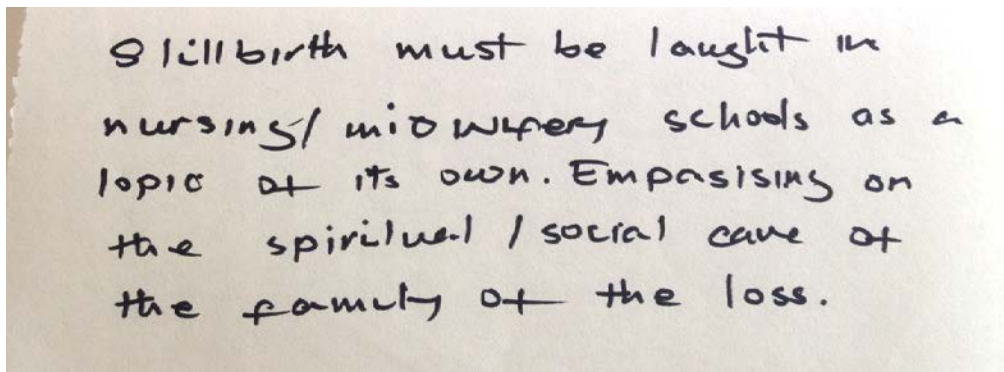 Stillbirth must be taught in
nursing/ midwifery schools as a
topic of its own. Empasising on
the spiritual / social care of
the family of the loss.